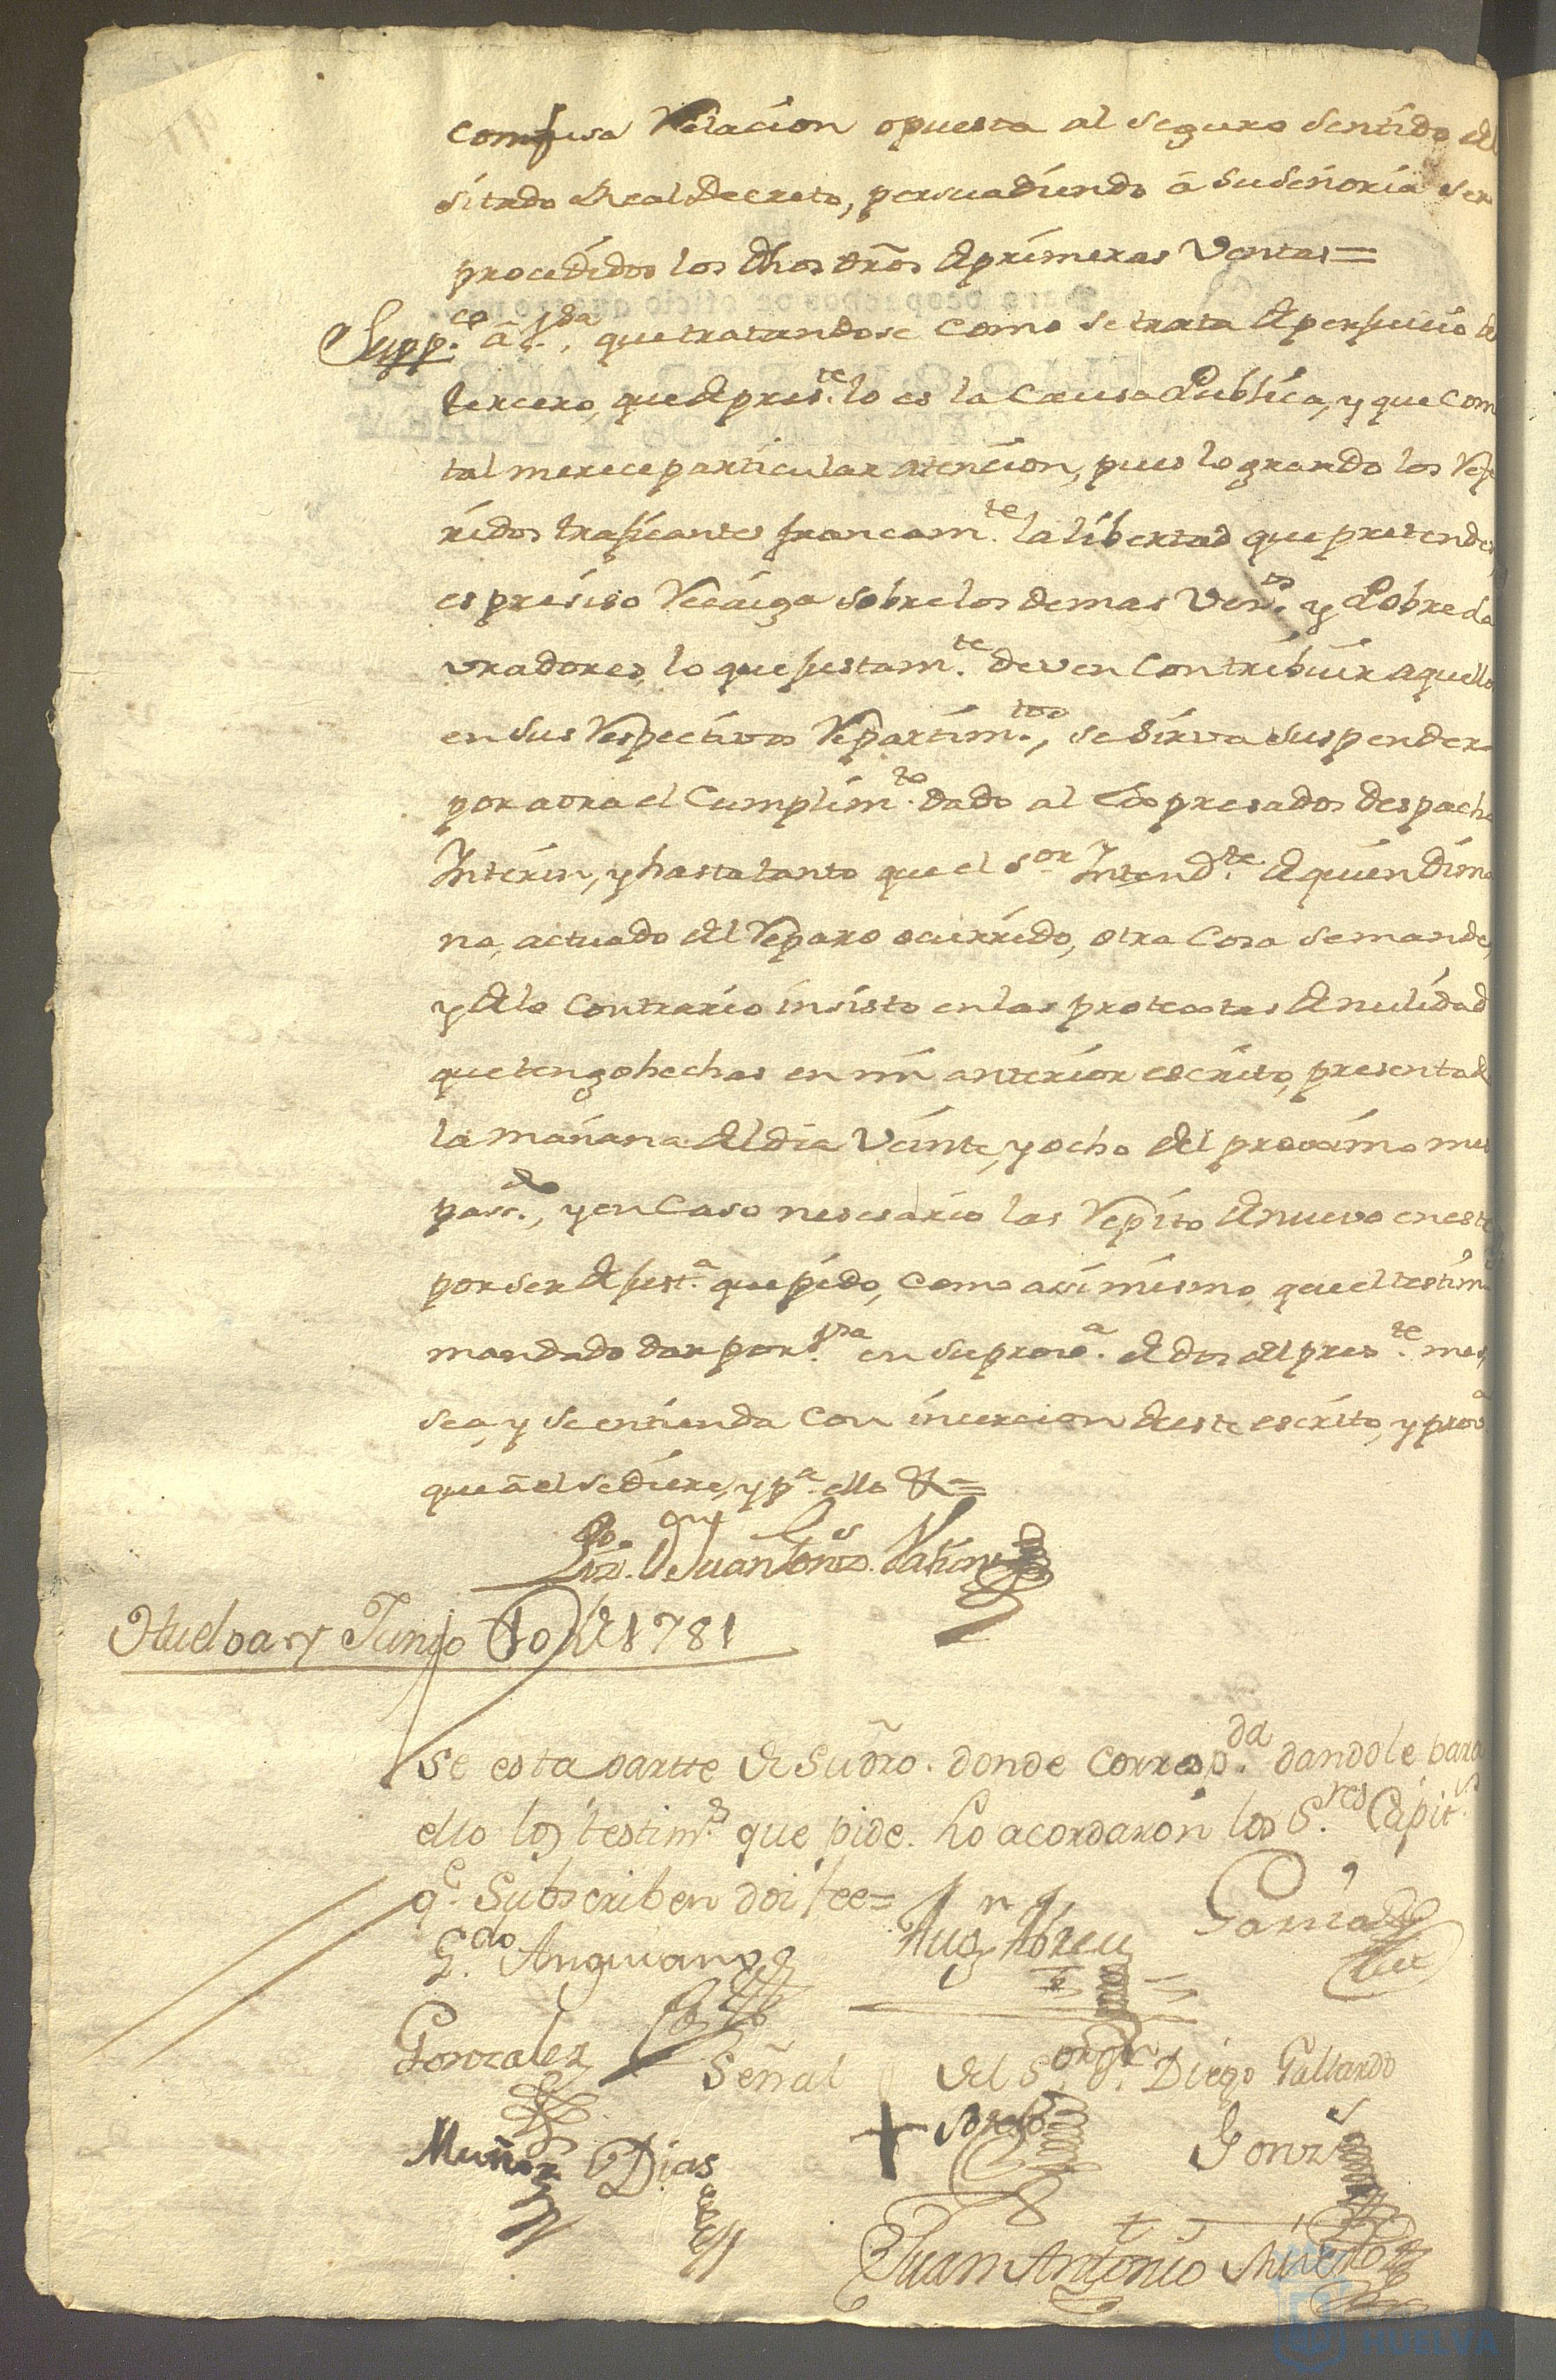 comfusa Relacion opuesta al seguro sentido del
sitado Real Decreto, persuadiendo â su señoria ser
procedidos los dhos dr̃os de primeras Ventas=
Suppco. â Vsa., que tratandose como se trata de perjuicio de
tercero, que de preste. lo es la Causa Publica, y que com
tal merece particular atencion, pues logrando los Refe
ridos traficantes francamte. la libertad que pretenden,
es presiso Recaiga sobre los demas Veos. y Pobres La
vradores, lo que justamte. deven Contribuir aquello
en sus Respectivos Repartimtos., se sirva suspender
por aora el Cumplimto. dado al Expresados despacho
Interin, y hasta tanto que el Sor. Intendte. de quien Dima
na, actuado del Reparo ocurrido, otra Cosa se mande,
y de lo Contrario insisto en las protextas de nulidad
que tengo hechas en mi anterior escrito, presentado
la mañana del dia Veinte, y ocho del proximo mes
pasdo., y en Caso nesesario las Repito de nuevo en este
por ser de justa. que pido, como assi mismo, que el testimo
mandado dar por Vsa. en su prova. de dos del preste. mes,
sea, y se entienda con incercion de este escrito, y prova
que â el se diere, y pa. ello &=
Lizdo. Dn Juan Gonz.
Huelva y Junio 10 de 1781
Use esta partte de su dr̃o. donde correspda. dandole para
ello los testimos. que pide. Lo acordaron los Sres. Capits.
qe. Subscriben doi fee=
Gdo. Anguiano
Abreu
Garcia
Gonzalez
Señal del Sor. Dn. Diego Gallardo
+
Muñoz
Dias
Gonzs
Juan Antonio
HUELVA